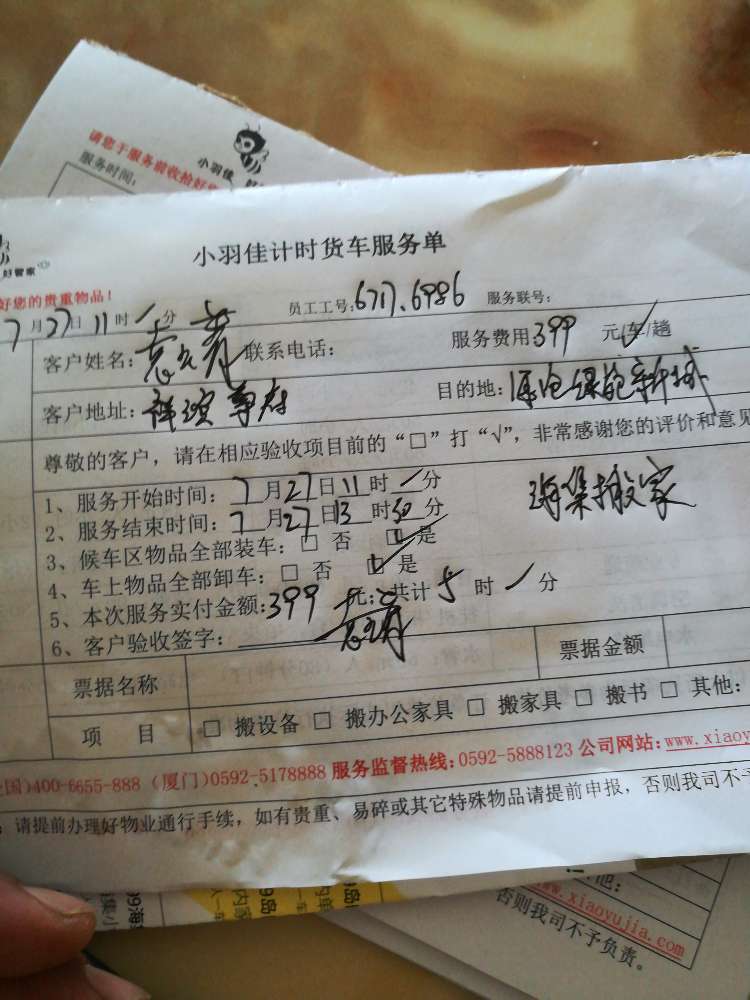 请您于服务前收拾好
服务时间:
小羽佳
小羽佳计时货车服务单
好管家
好您的贵重物品!
7月27日11时/分 员工工号:6717.6986 服务联号:
客户姓名: 联系电话: 服务费用399 元/车/趟
客户地址:祥 尊府 目的地:海沧绿苑新城
尊敬的客户,请在相应验收项目前的“□”打“√”,非常感谢您的评价和意见
1、服务开始时间:7月27日11时/分
海集搬家
2、服务结束时间:7月27日13时50分
3、候车区物品全部装车:□ 否 ☑ 是
4、车上物品全部卸车:□ 否 ☑ 是
5、本次服务实付金额:399 元;共计5时/分
6、客户验收签字:
票据名称 票据金额
项 目 □ 搬设备 □ 搬办公家具 □ 搬家具 □ 搬书 □ 其他:
国)400-6655-888 (厦门)0592-5178888 服务监督热线:0592-5888123 公司网站:www.xiaoy
:请提前办理好物业通行手续,如有贵重、易碎或其它特殊物品请提前申报,否则我司不
他:
www.xiaoyujia.com
否则我司不予负责。